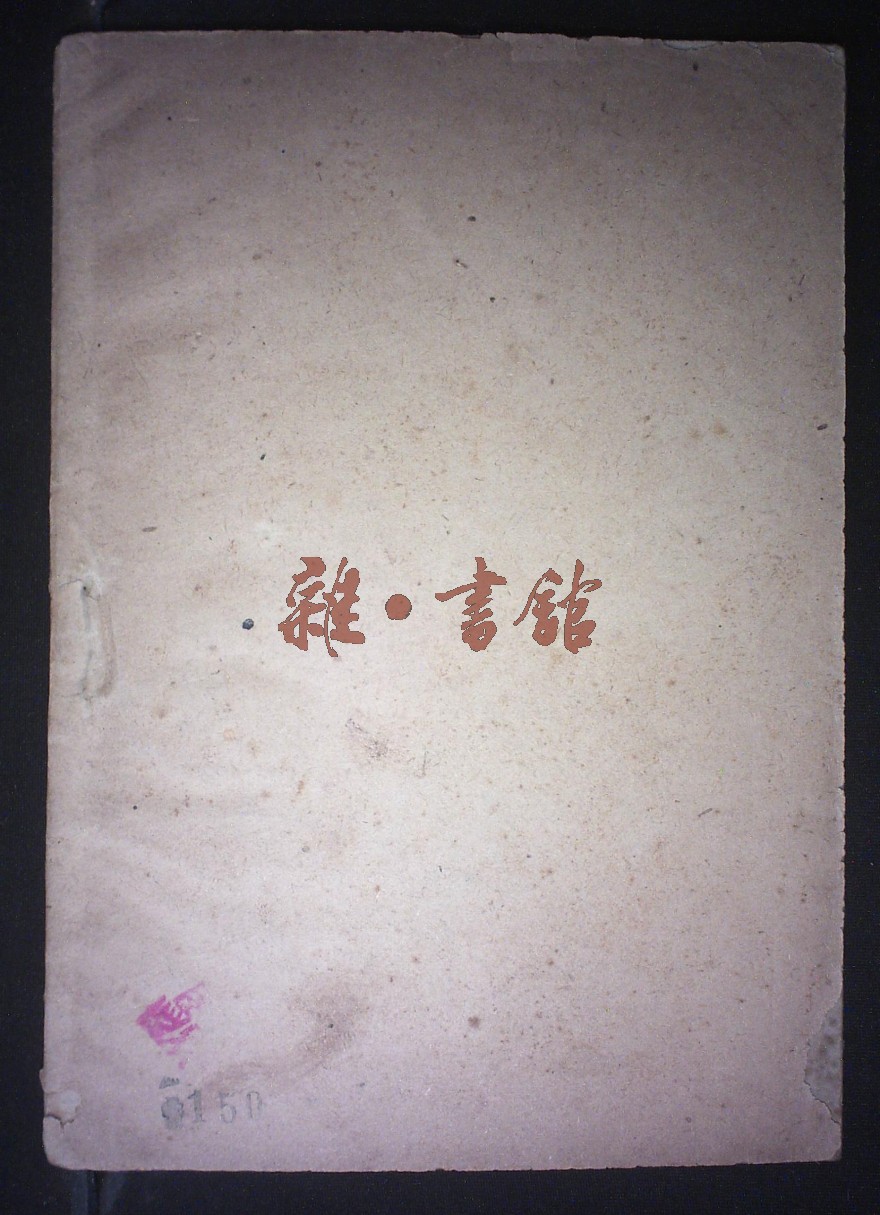 雜・書館
0150